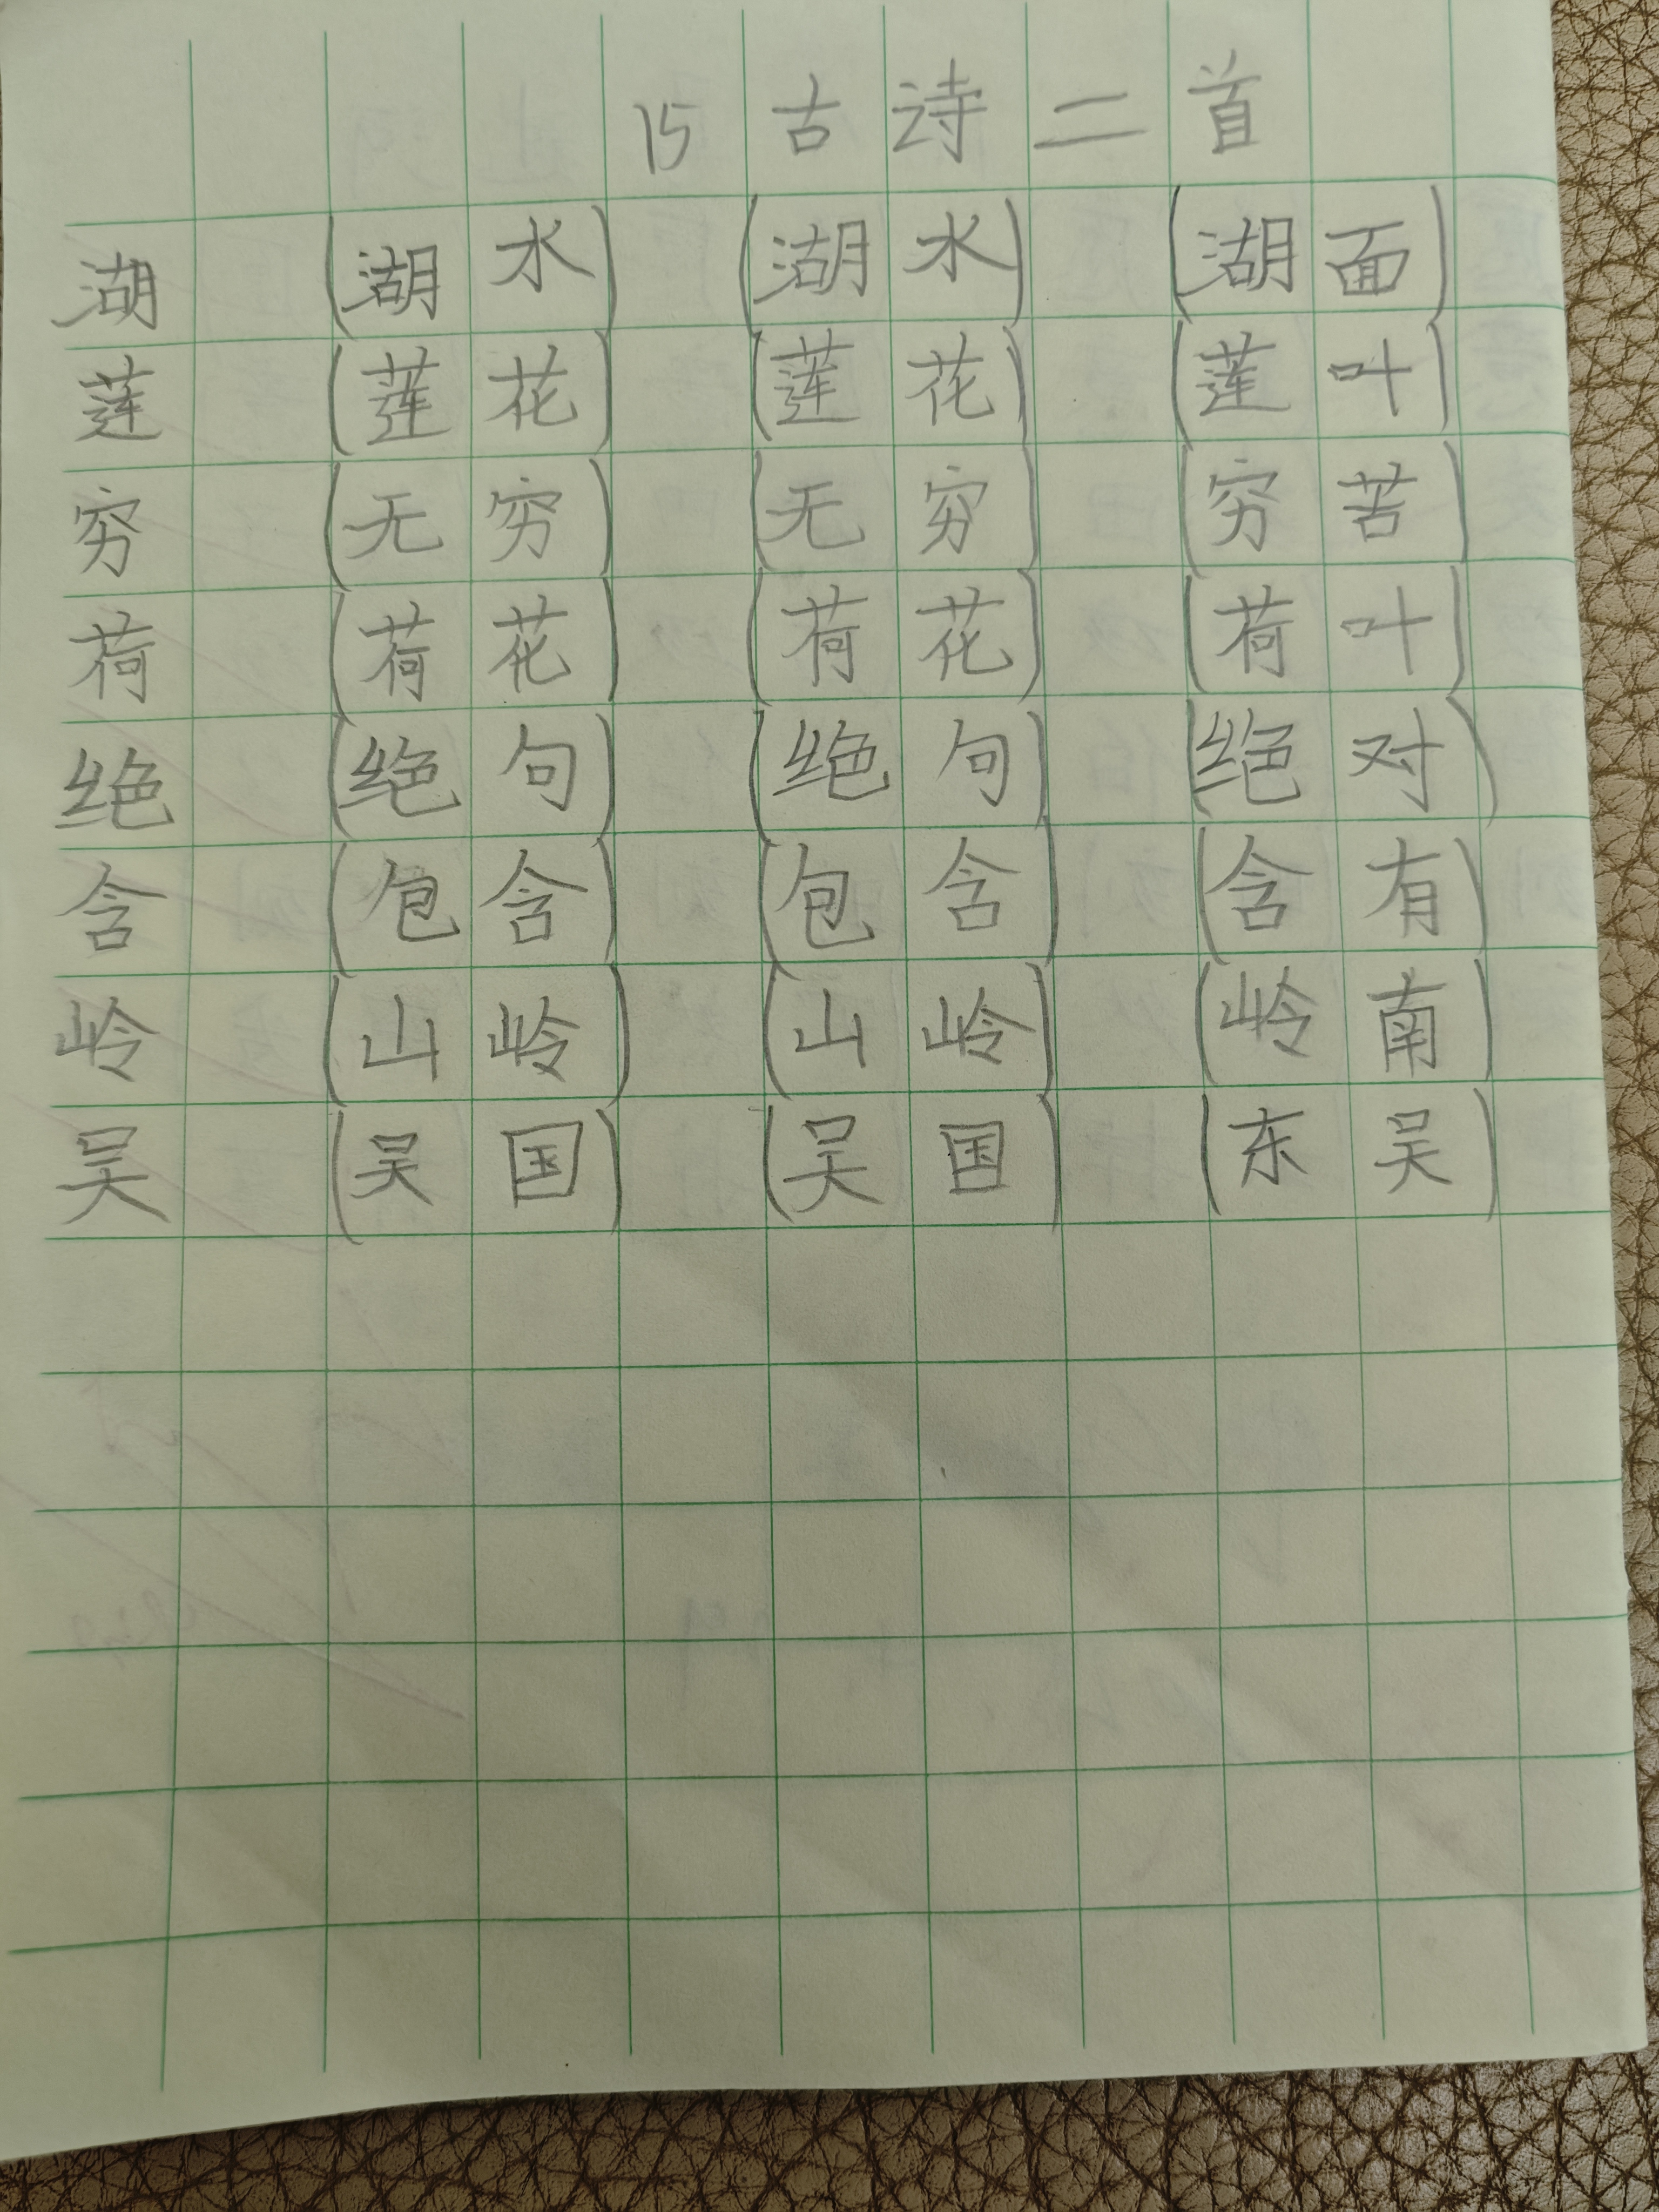 15 古诗二首
湖 (湖水) (湖水) (湖面)
莲 (莲花) (莲花) (莲叶)
穷 (无穷) (无穷) (穷苦)
荷 (荷花) (荷花) (荷叶)
绝 (绝句) (绝句) (绝对)
含 (包含) (包含) (含有)
岭 (山岭) (山岭) (岭南)
吴 (吴国) (吴国) (东吴)